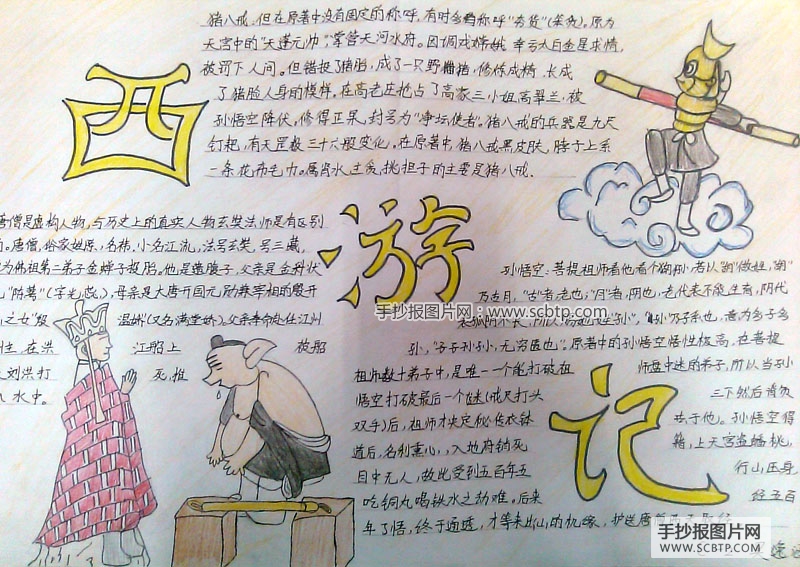 西
游
记
猪八戒,但在原著中没有固定的称呼,有时会称呼"夯货"(笨货)。原为
天宫中的"天蓬元帅",掌管天河水府。因调戏嫦娥 幸亏太白金星求情,
被罚下人间。但错投了猪胎,成了一只野猪,修炼成精,长成
了猪脸人身的模样。在高老庄抢占了高家三小姐高翠兰,被
孙悟空降伏,修得正果,封号为"净坛使者"。猪八戒的兵器是九尺
钉耙,有天罡数三十六般变化。在原著中,猪八戒黑皮肤,脖子上系
一条花布毛巾。属肾水
挑担子的主要是猪八戒.
唐僧是虚构人物,与历史上的真实人物玄奘法师是有区别
唐僧,俗家姓陈,名祎,小名江流,法号玄奘,号三藏,
为佛祖第二弟子金蝉子投胎。他是遗腹子,父亲是金科状
"陈萼"(字光蕊),母亲是大唐开国元勋殷宰相的殷开
之女"殷 温娇(又名满堂娇),父亲奉命赴任江州
在洪 江船上 被船
刘洪打 死,推
水中。
孙悟空:菩提祖师看他
"古"者,老也;"月"者,阴也,老代表不能生育,阴代
孙,"子子孙孙,无穷匮也"。原著中的孙悟空悟性极高,在菩提
祖师数十弟子中,是唯一一个能打破祖 师盘中迷的弟子,所以当孙
悟空打破最后一个谜(戒尺打头 三下然后背负
双手)后,祖师才决定秘传衣钵 于他。孙悟空得
道后,名利熏心,入地府销死 籍,上天宫盗蟠桃,
目中无人,故此受到五百年五 行山压身
吃铜丸喝铁水之劫难。后来 经五百
年了悟,终于通透,才等来出山的机缘,护送唐
手抄报图片网:www.scbtp.com
手抄报图片网
WWW.SCBTP.COM